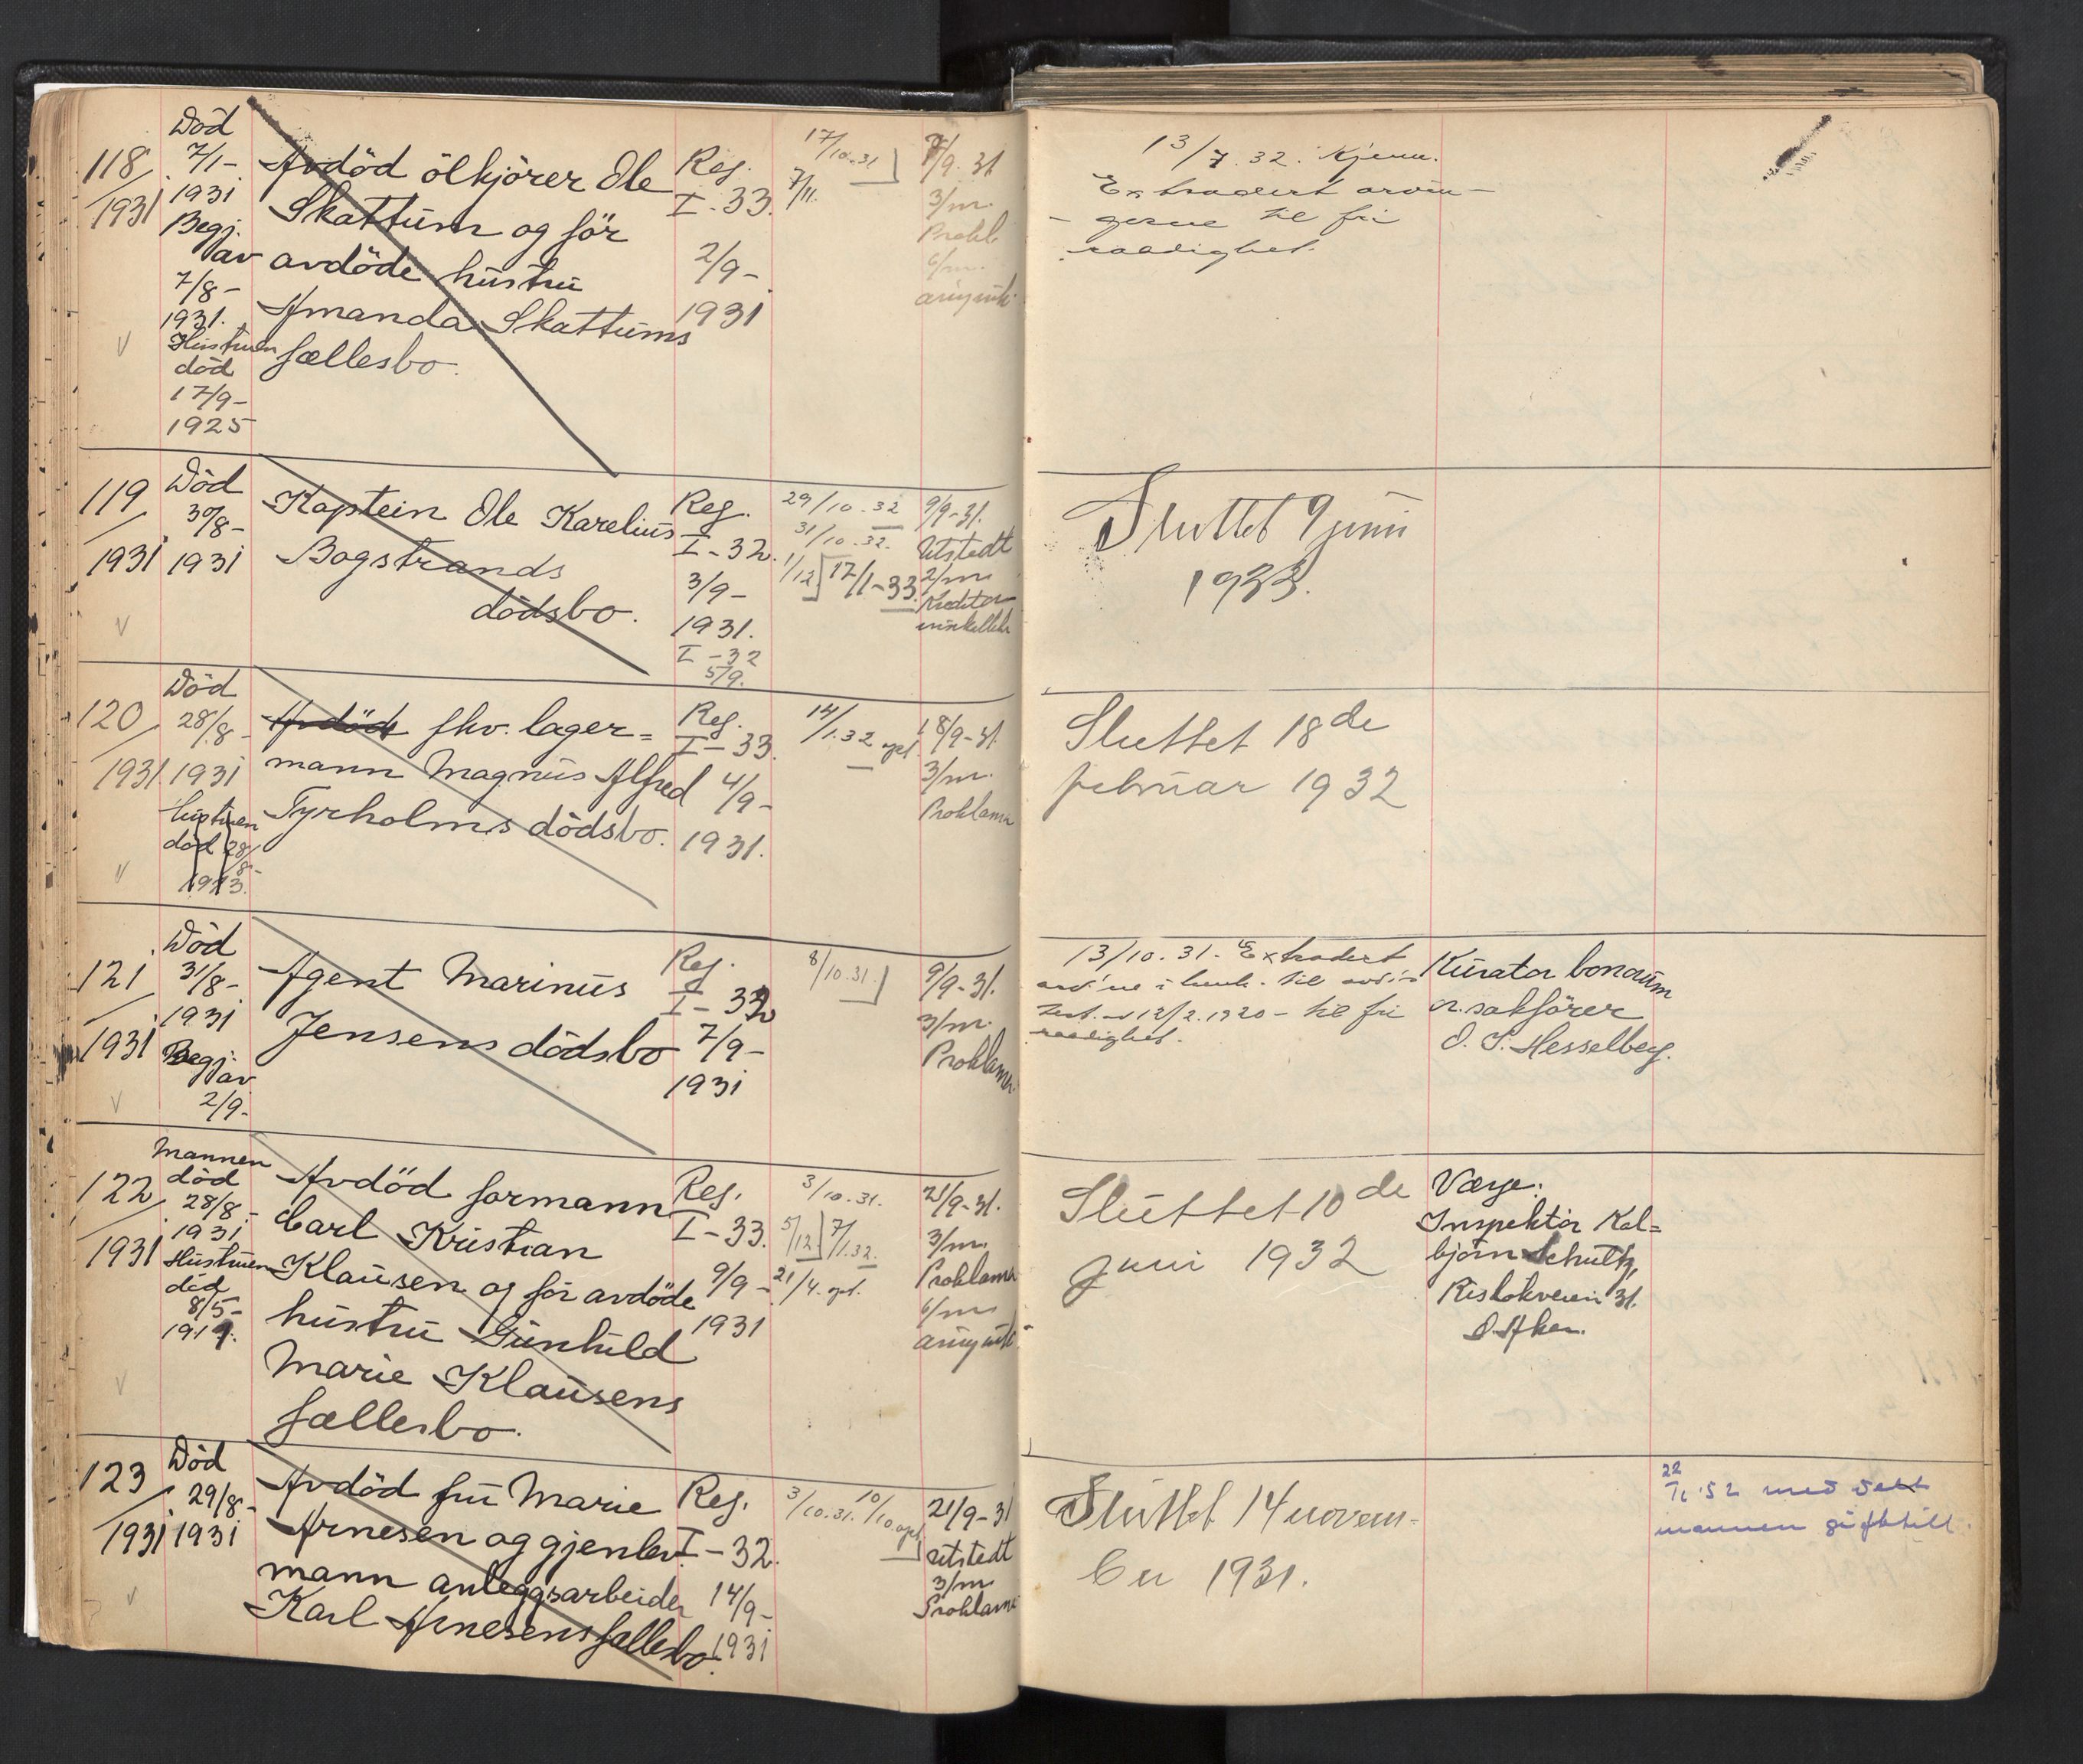 118/1931
Död
7/1-
1931
Begj.
av
7/8-
1931.
Hustruen
död
17/9-
1925
Avdöd ölkjörer Ole
Skattum og för
avdöde hustru
Amanda Skattums
fællesbo.
Reg.
I-33.
2/9-
1931
17/10.31
7/11.
9/9.31
3/m.
Prokl.
6/m.
13/7.32. Kjenn.
Extradert arvin-
- gerne til fri
raadighet.
119/1931
Död
30/8-
1931
Kaptein Ole Karelius
Bogstrands
dödsbo.
Reg.
I-32.
3/9-
1931.
I-32
5/9.
29/10.32
31/10.32.
1/12] 17/1-33.
9/9-31.
Utstedt
2/m
Kreditor
Sluttet 9 juni
1933.
120/1931
Död
28/8-
1931
Hustruen
död 28/8-
1913.
Avdöde fhv. lager=
mann Magnus Alfred
Tyrholms dödsbo.
Reg.
I-33
4/9-
1931.
14/1.32 opt.
18/9-31.
3/m.
Proklama
Sluttet 18de
februar 1932
121/1931
Död
31/8-
1931
Begj.
av
2/9-
Agent Marinus
Jensens dödsbo
Reg.
I-32
7/9-
1931
8/10.31.]
9/9-31.
3/m.
Proklama
13/10.31. Extradert
i henh. til
test. 12/2.1920 - til fri
raadighet.
Kurator bonorum
o.r.sakförer
O. S. Hesselberg.
122/1931
Mannen
död
28/8-
1931
Hustruen
död
8/5-
1919.
Avdöd formann
Carl Kristian
Klausen og för avdöde
hustru Gunhild
Marie Klausens
fællesbo.
Reg.
I-33.
9/9-
1931
3/10.31.
5/12] 7/1.32.
21/4. opt.
21/9-31.
3/m.
Proklama
6/m
Sluttet 10de
juni 1932
Værge:
Inspektör Kol=
björn Schultz,
Risløkveien 31.
Ö. Aker.
123/1931
Död
29/8-
1931
Avdöd fru Marie
Arnesen og gjenlev.
mann anleggsarbeider
Karl Arnesens fællesbo.
Reg.
I-32.
14/9-
1931
3/10.31. 10/10 opt.]
21/9-31
Utstedt
3/m
Proklama
Sluttet 14 novem-
ber 1931.
22/ 52 med
mannen